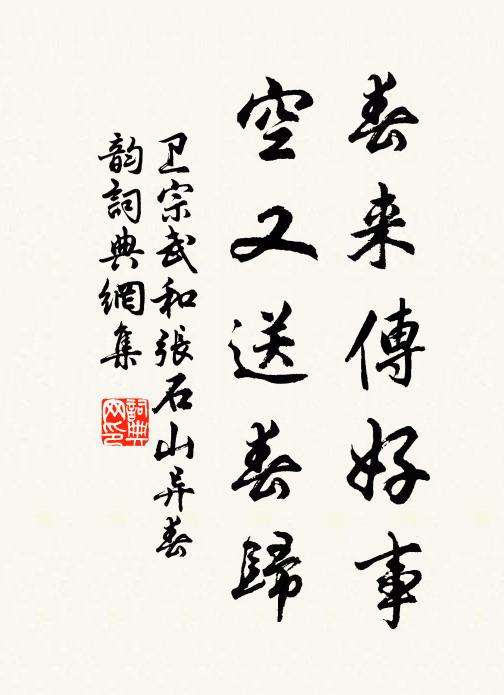 春来傳好事
空又送春歸
卫宗武和張石山异春
韵詞典網集
詞典網印